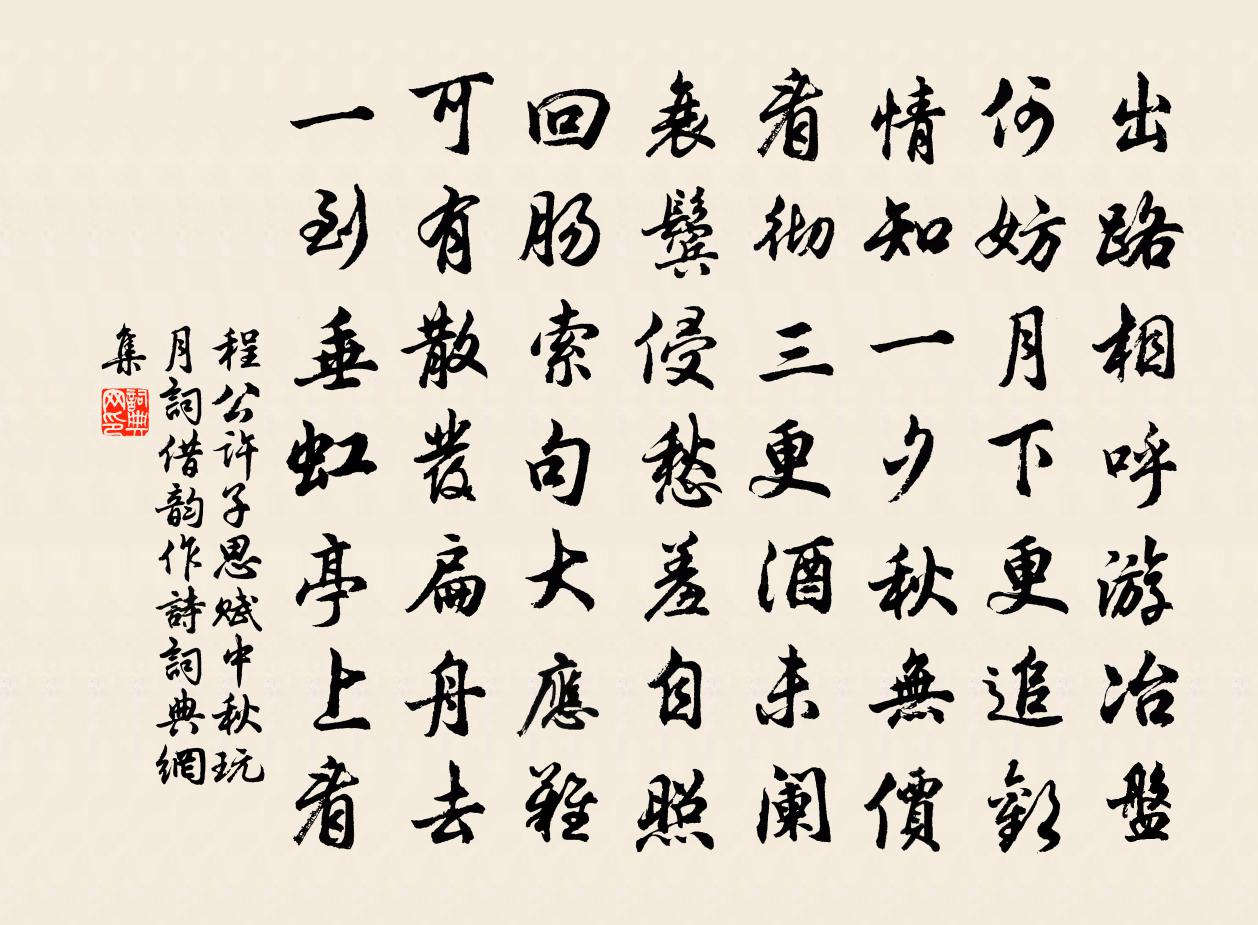 出路相呼游冶盤
何妨月下更追歡
情知一夕秋無價
看彻三更酒未闌
衰鬢侵愁羞自照
回腸索句大應難
可有散發扁舟去
一到垂虹亭上看
程公許子思賦中秋玩
月詞借韵作詩詞典網
集
詞典
网印